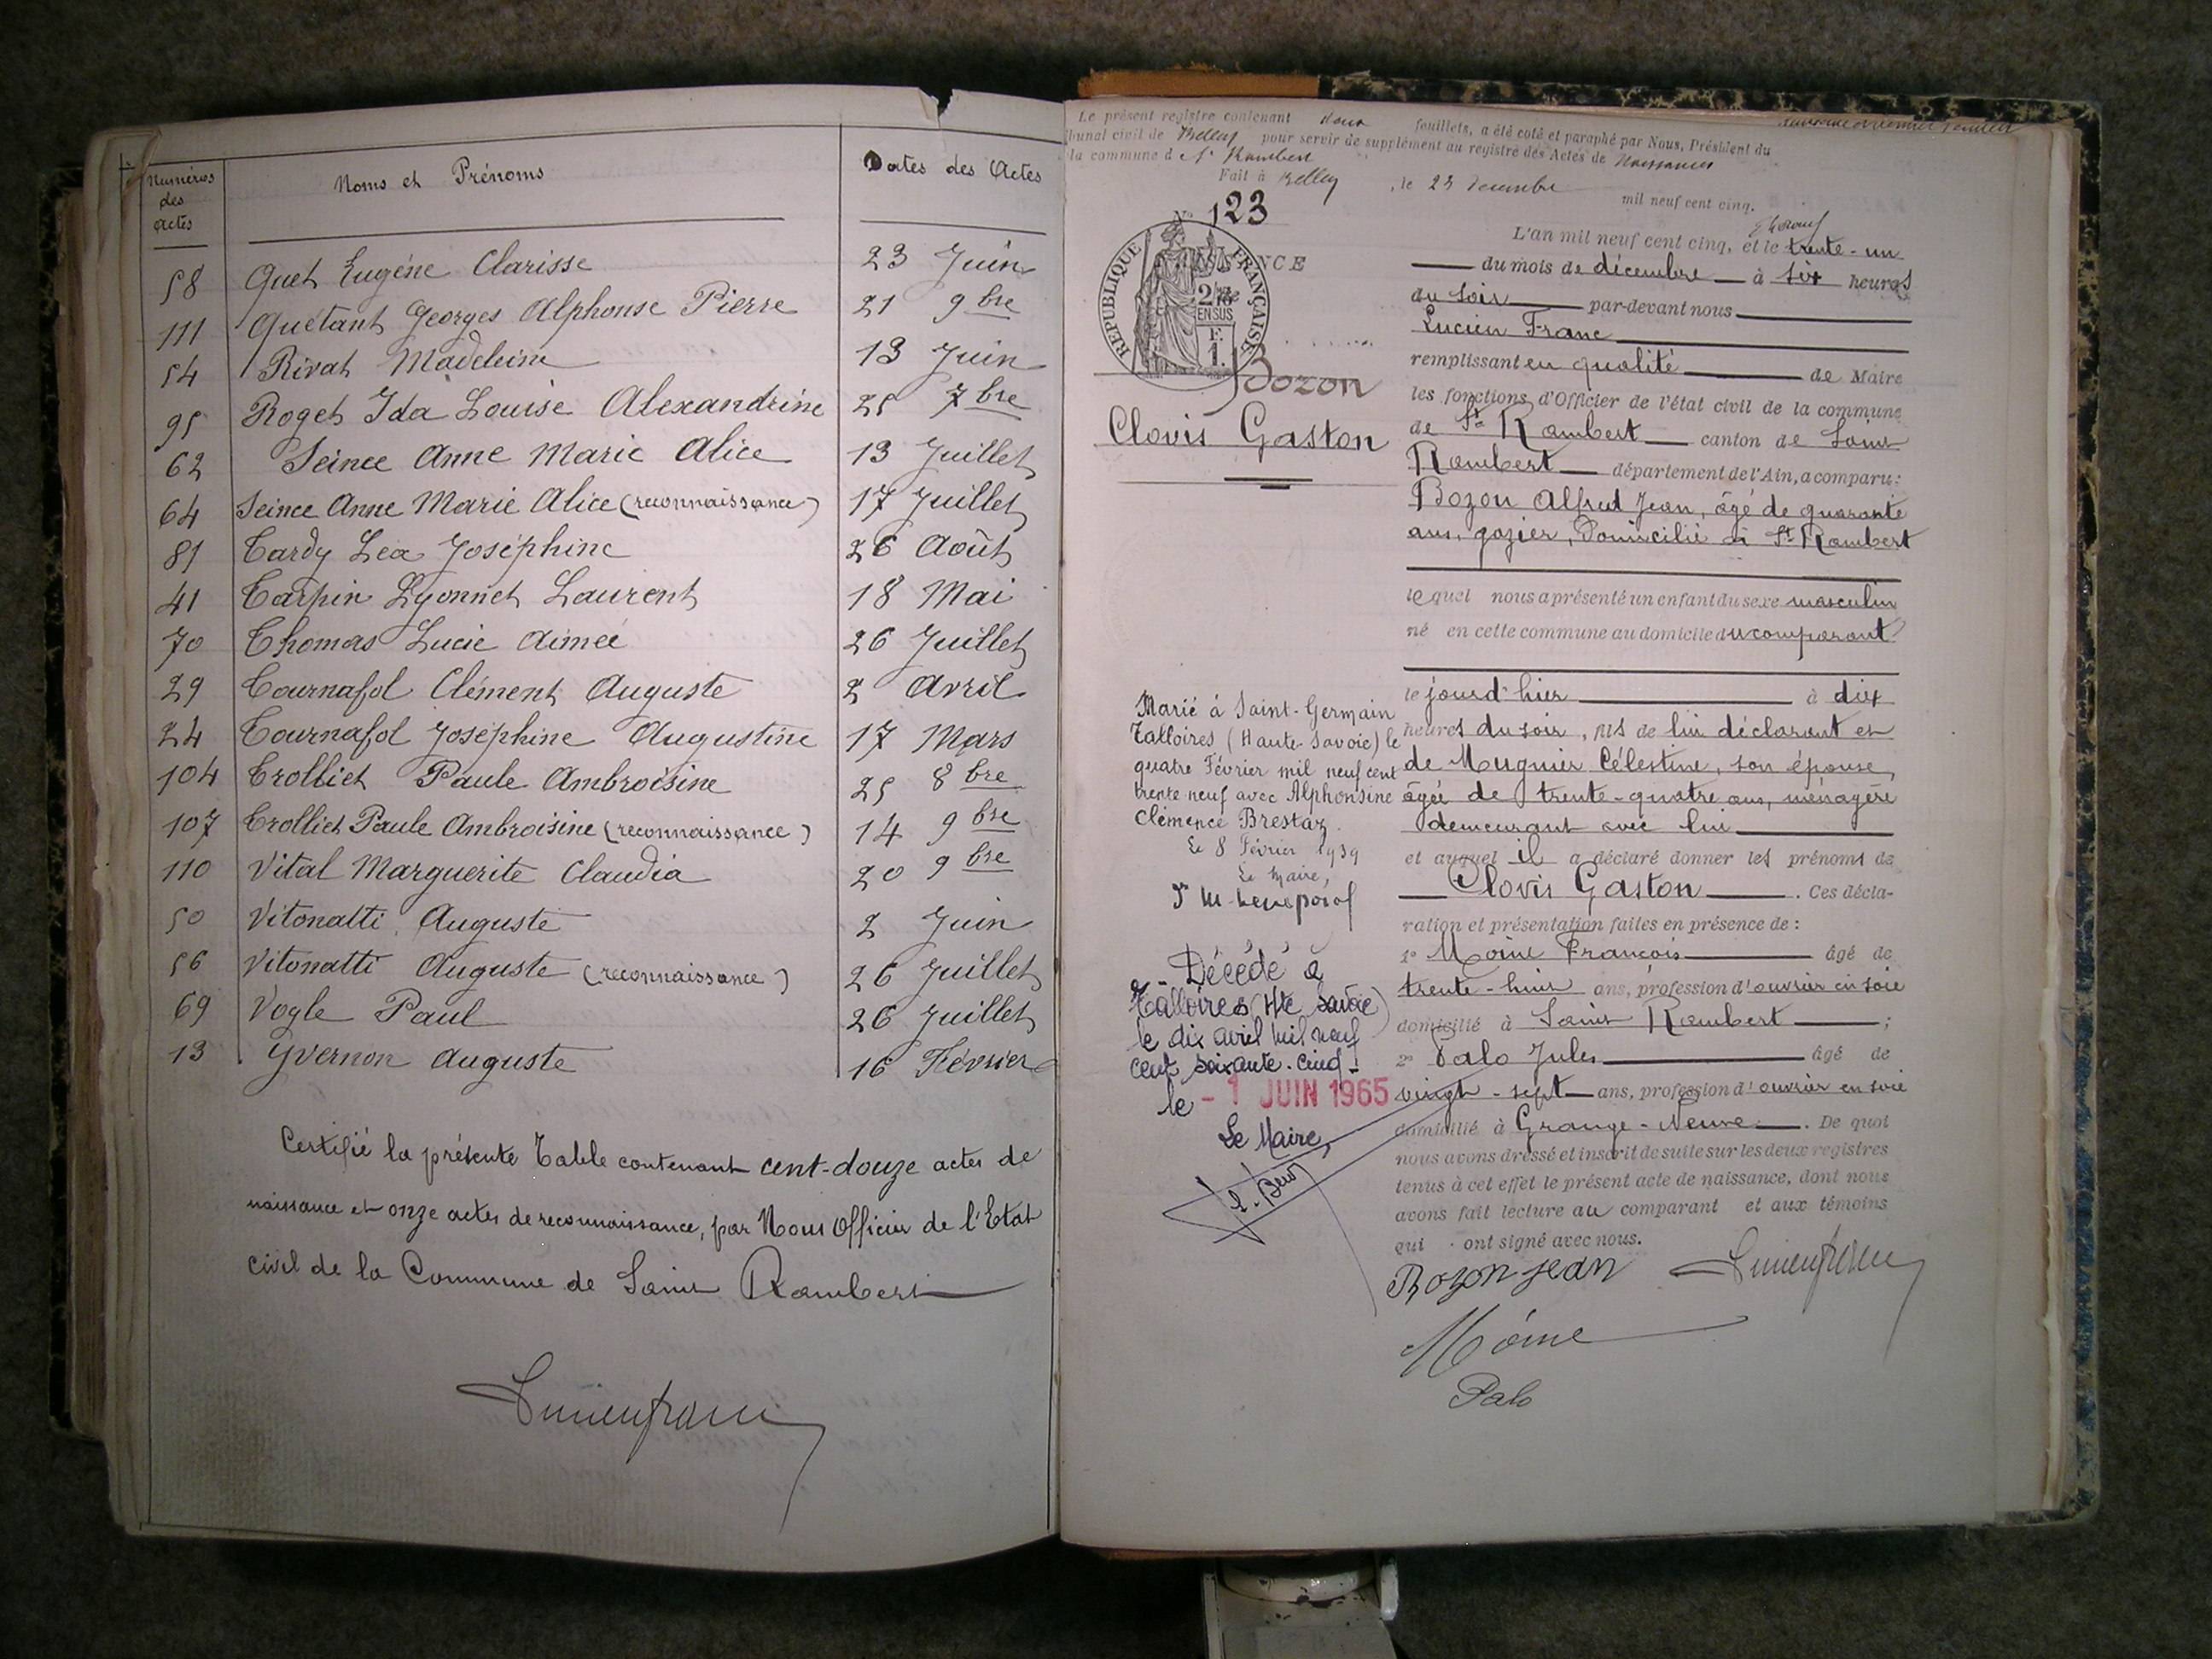 Numéros des actes Noms et Prénoms Dates des Actes
58 Quet Eugéne Clarisse 23 Juin
111 Quetant Georges Alphonse Pierre 21 9bre
54 Rivat Madeleine 13 Juin
95 Roget Ida Louise Alexandrine 25 7bre
62 Seince Anne Marie Alice 13 Juillet
64 Seince Anne Marie Alice (reconnaissance) 17 Juillet
81 Tardy Lea Joséphine 26 Août
41 Tarpin Lyonnet Laurent 18 Mai
70 Thomas Lucie Aimée 26 Juillet
29 Tournafol Clément Auguste 2 Avril
24 Tournafol Joséphine Augustine 17 Mars
104 Trolliet Paule Ambroisine 25 8bre
107 Trolliet Paule Ambroisine (reconnaissance) 14 9bre
110 Vital Marguerite Claudia 20 9bre
50 Vitonatti Auguste 2 Juin
56 Vitonatti Auguste (reconnaissance) 26 Juillet
69 Vogle Paul 26 Juillet
13 Yvernon Auguste 16 Février
Certifié la présente Table contenant cent-douze actes de
naissance et onze actes de reconnaissance, par Nous Officier de l'Etat
civil de la Commune de Saint Rambert
Le présent registre contenant deux feuillets, a été coté et paraphé par Nous, Président du
tribunal civil de Belley pour servir de supplément au registre des Actes de Naissances
la commune d St Rambert
Fait à Belley, le 23 décembre mil neuf cent cinq.
No 123
RÉPUBLIQUE FRANÇAISE
2/10 EN SUS
F. 1.
Bozon
Clovis Gaston
L'an mil neuf cent cinq, et le trente-un
du mois de décembre à six heures
du soir par-devant nous
Lucien Franc
remplissant en qualité de Maire
les fonctions d'Officier de l'état civil de la commune
de St Rambert canton de Saint
Rambert département de l'Ain, a comparu:
Bozon Alfred Jean, âgé de quarante
ans, gazier, domicilié à St Rambert
lequel nous a présenté un enfant du sexe masculin
né en cette commune au domicile du comparant
le jourd'hier à dix
heures du soir, fils de lui déclarant et
de Mugnier Célestine, son épouse,
âgée de trente-quatre ans, ménagère
demeurant avec lui
et auquel il a déclaré donner les prénoms de
Clovis Gaston. Ces décla-
ration et présentation faites en présence de:
1° Moine François âgé de
trente-huit ans, profession d'ouvrier en soie
domicilié à Saint Rambert;
2° Palo Jules âgé de
vingt-sept ans, profession d'ouvrier en soie
domicilié à Grange-Neuve. De quoi
nous avons dressé et inscrit de suite sur les deux registres
tenus à cet effet le présent acte de naissance, dont nous
avons fait lecture au comparant et aux témoins
qui ont signé avec nous.
Bozon jean
Moine
Palo
Marié à Saint-Germain
Talloires (Haute-Savoie) le
quatre Février mil neuf cent
trente neuf avec Alphonsine
Clémence Brestaz.
Le 8 Février 1939
Le Maire,
Décédé à
Talloires (Hte Savoie)
le dix avril mil neuf
cent soixante-cinq
le - 1 JUIN 1965
Le Maire,